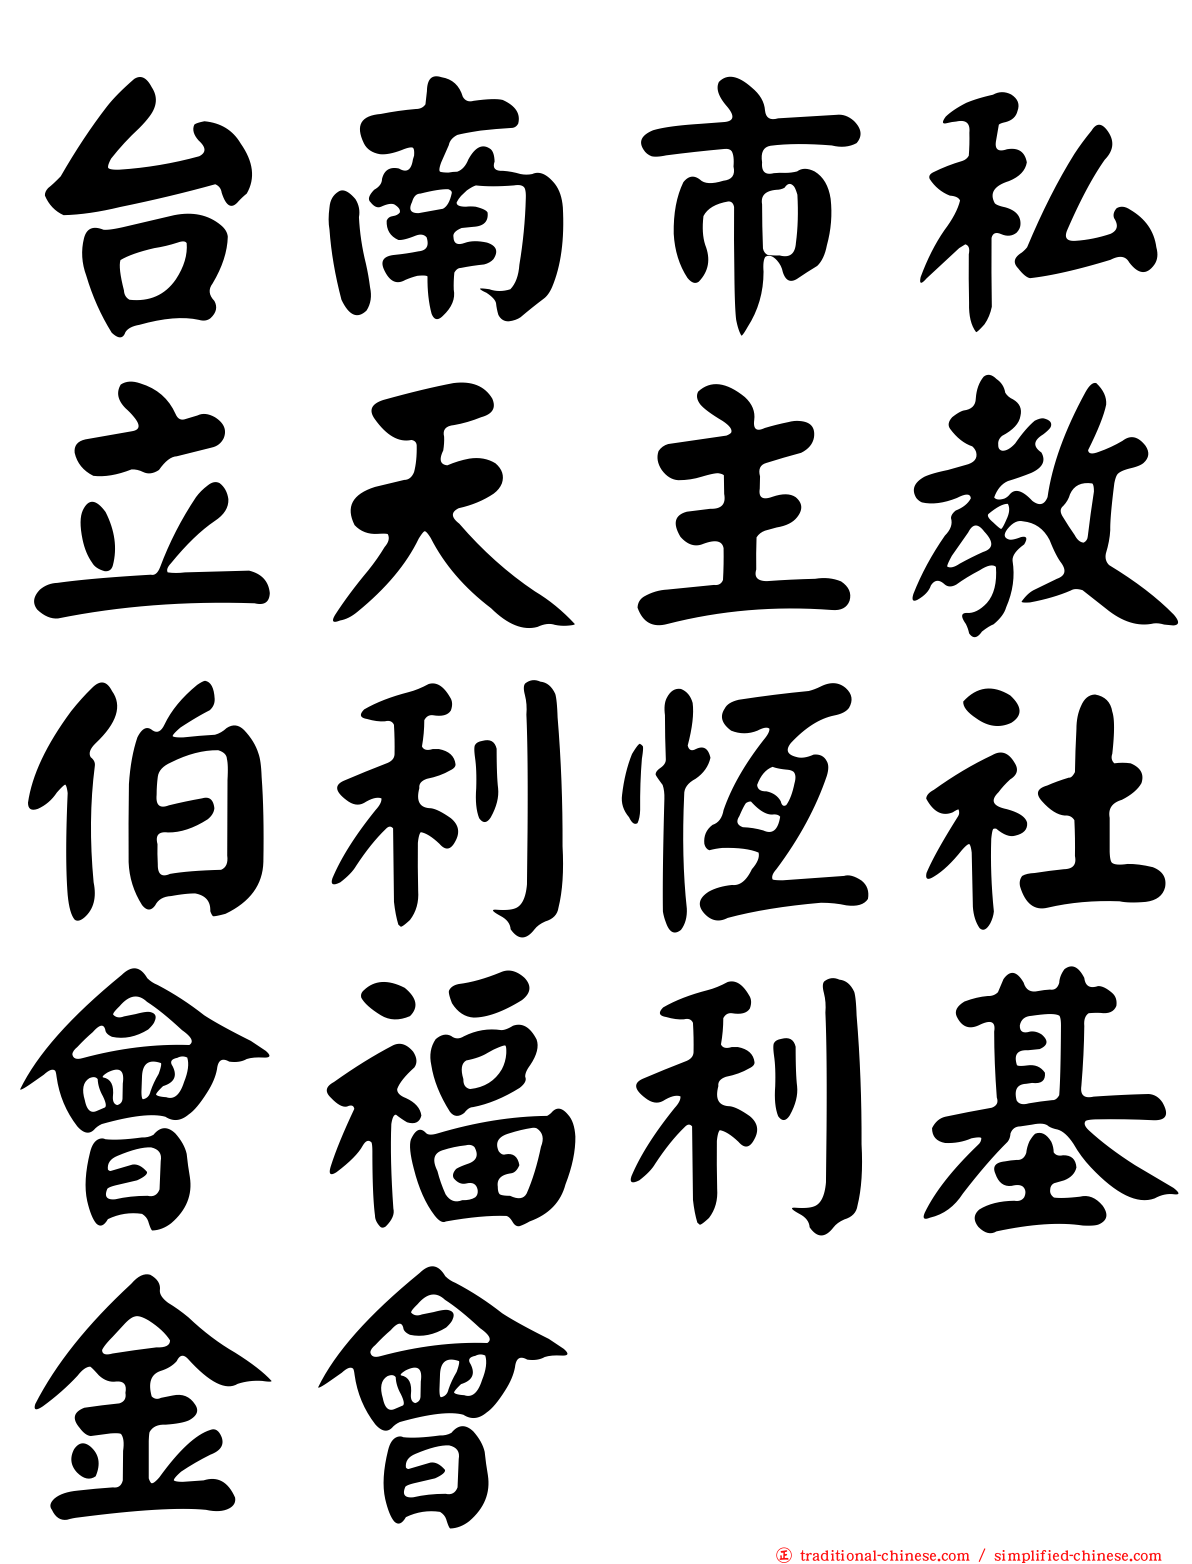 台南市私
立天主教
伯利恆社
會福利基
金會
正 traditional-chinese.com / simplified-chinese.com